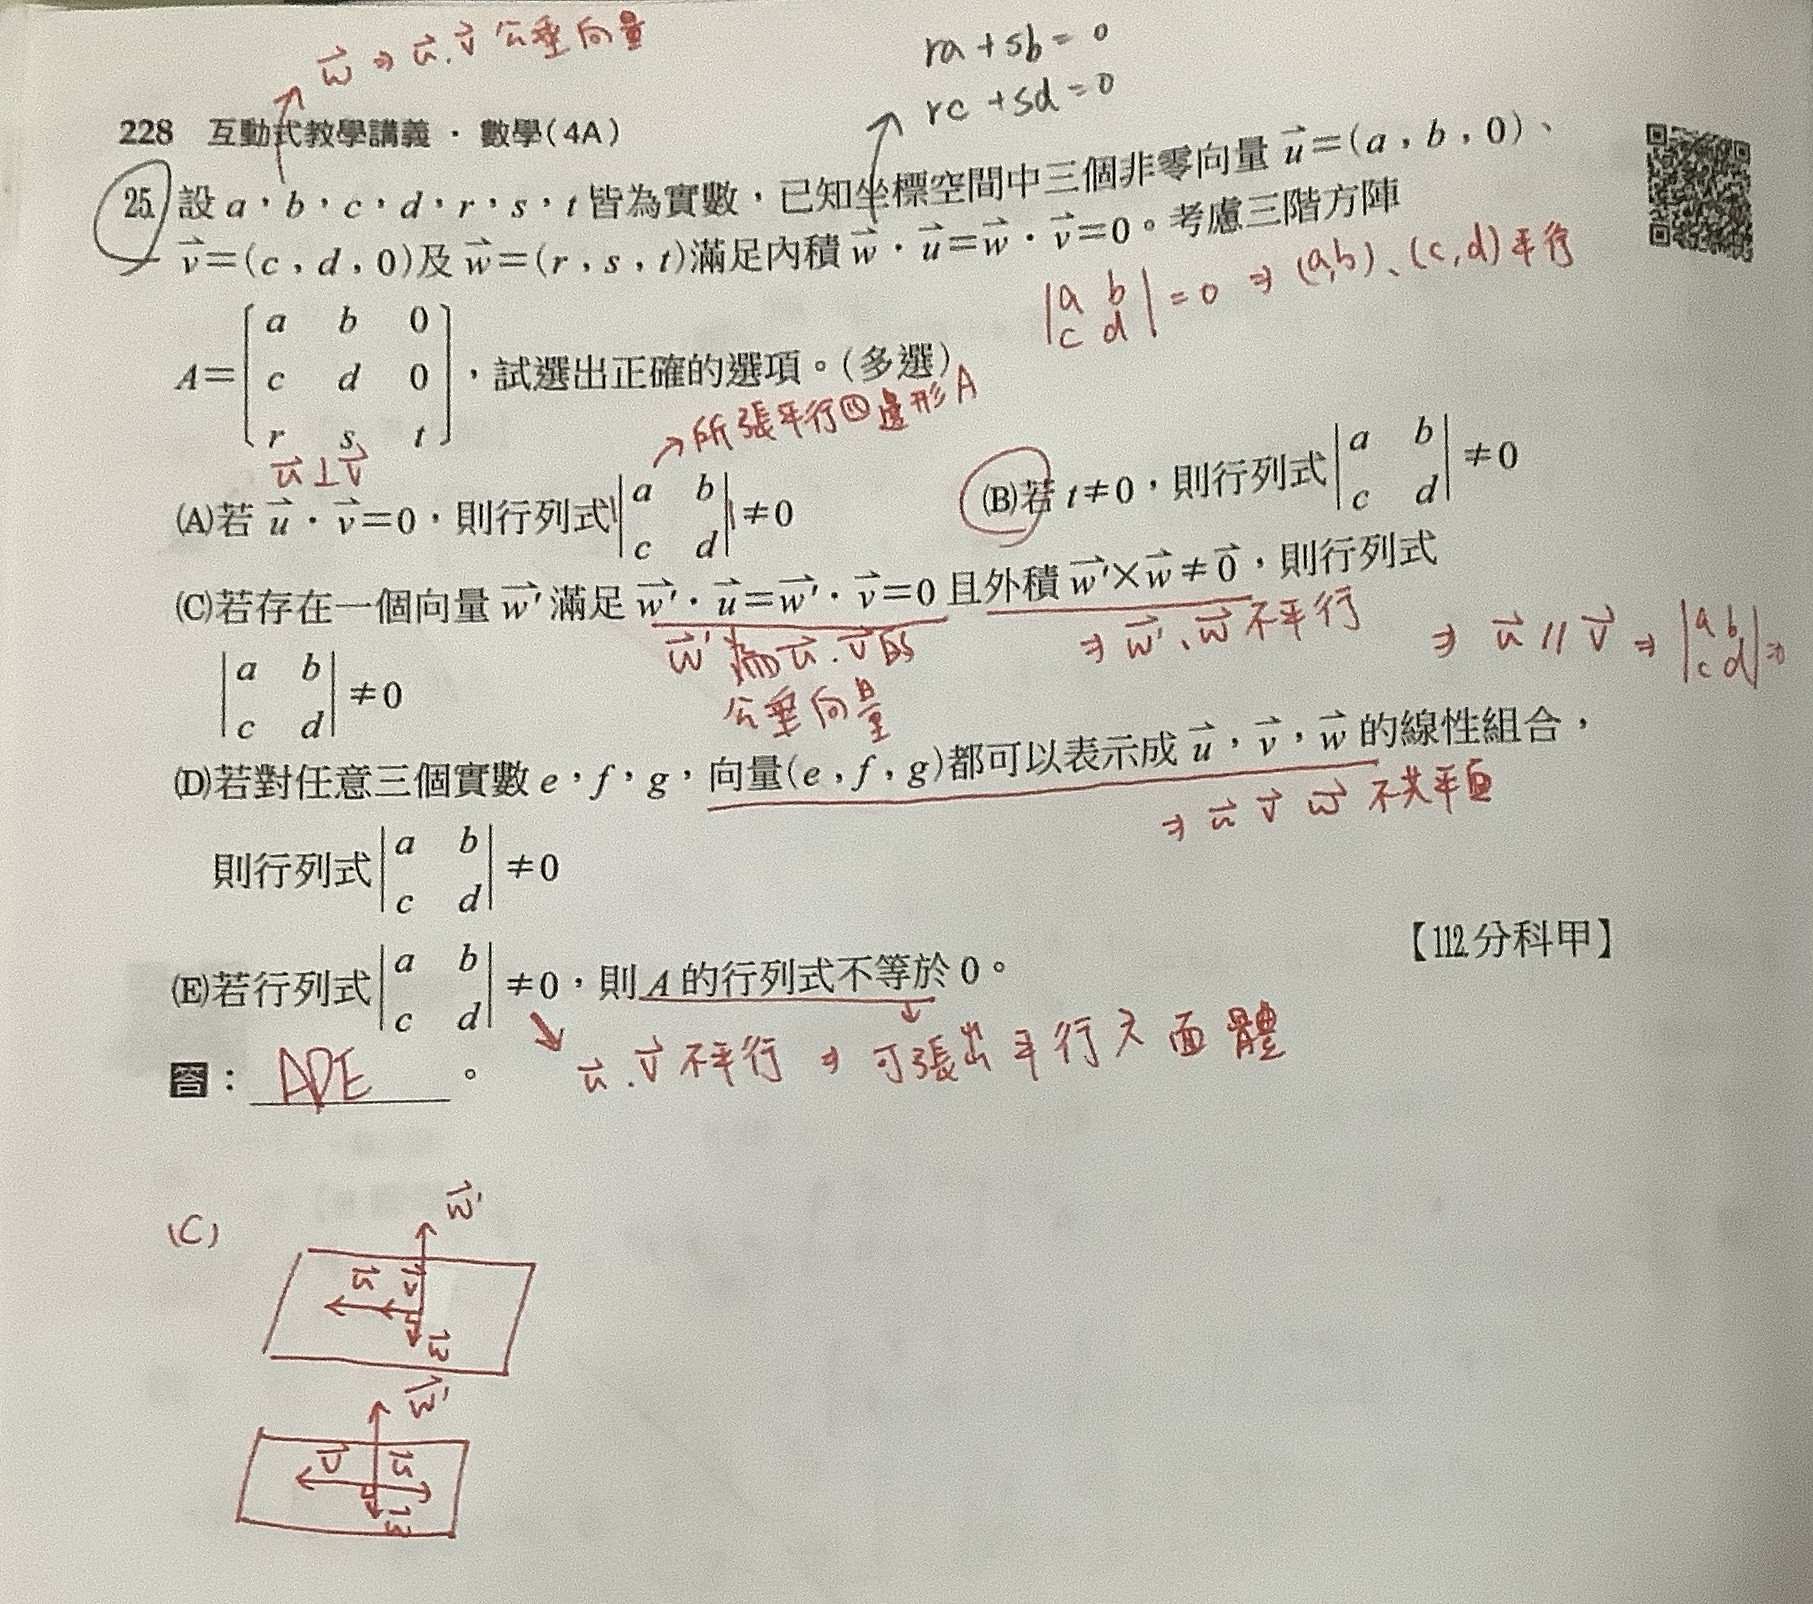 w⃗ ⇒ u⃗.v⃗ 公垂向量
ra+sb=0
rc+sd=0
228 互動式教學講義・數學(4A)
25. 設 a,b,c,d,r,s,t 皆為實數,已知坐標空間中三個非零向量 u⃗=(a,b,0)、
v⃗=(c,d,0)及 w⃗=(r,s,t)滿足內積 w⃗・u⃗=w⃗・v⃗=0。考慮三階方陣
|a b|
|c d| =0 ⇒ (a,b)、(c,d)平行
A= [a b 0]
[c d 0] ,試選出正確的選項。(多選)
[r s t]
u⃗⊥v⃗
→所張平行四邊形A
(A)若 u⃗・v⃗=0,則行列式 |a b|
|c d| ≠0
(B)若 t≠0,則行列式 |a b|
|c d| ≠0
(C)若存在一個向量 w⃗' 滿足 w⃗'・u⃗=w⃗'・v⃗=0 且外積 w⃗'×w⃗≠0⃗,則行列式
|a b|
|c d| ≠0
w⃗' 為 u⃗.v⃗ 的
公垂向量
⇒ w⃗'、w⃗ 不平行
⇒ u⃗ // v⃗ ⇒ |a b|
|c d| =0
(D)若對任意三個實數 e,f,g,向量(e,f,g)都可以表示成 u⃗,v⃗,w⃗ 的線性組合,
⇒ u⃗ v⃗ w⃗ 不共平面
則行列式 |a b|
|c d| ≠0
【112分科甲】
(E)若行列式 |a b|
|c d| ≠0,則 A 的行列式不等於 0。
u⃗.v⃗ 不平行 ⇒ 可張出平行六面體
答: ADE 。
(C)
w⃗'
u⃗ v⃗
w⃗
w⃗'
v⃗ u⃗
w⃗